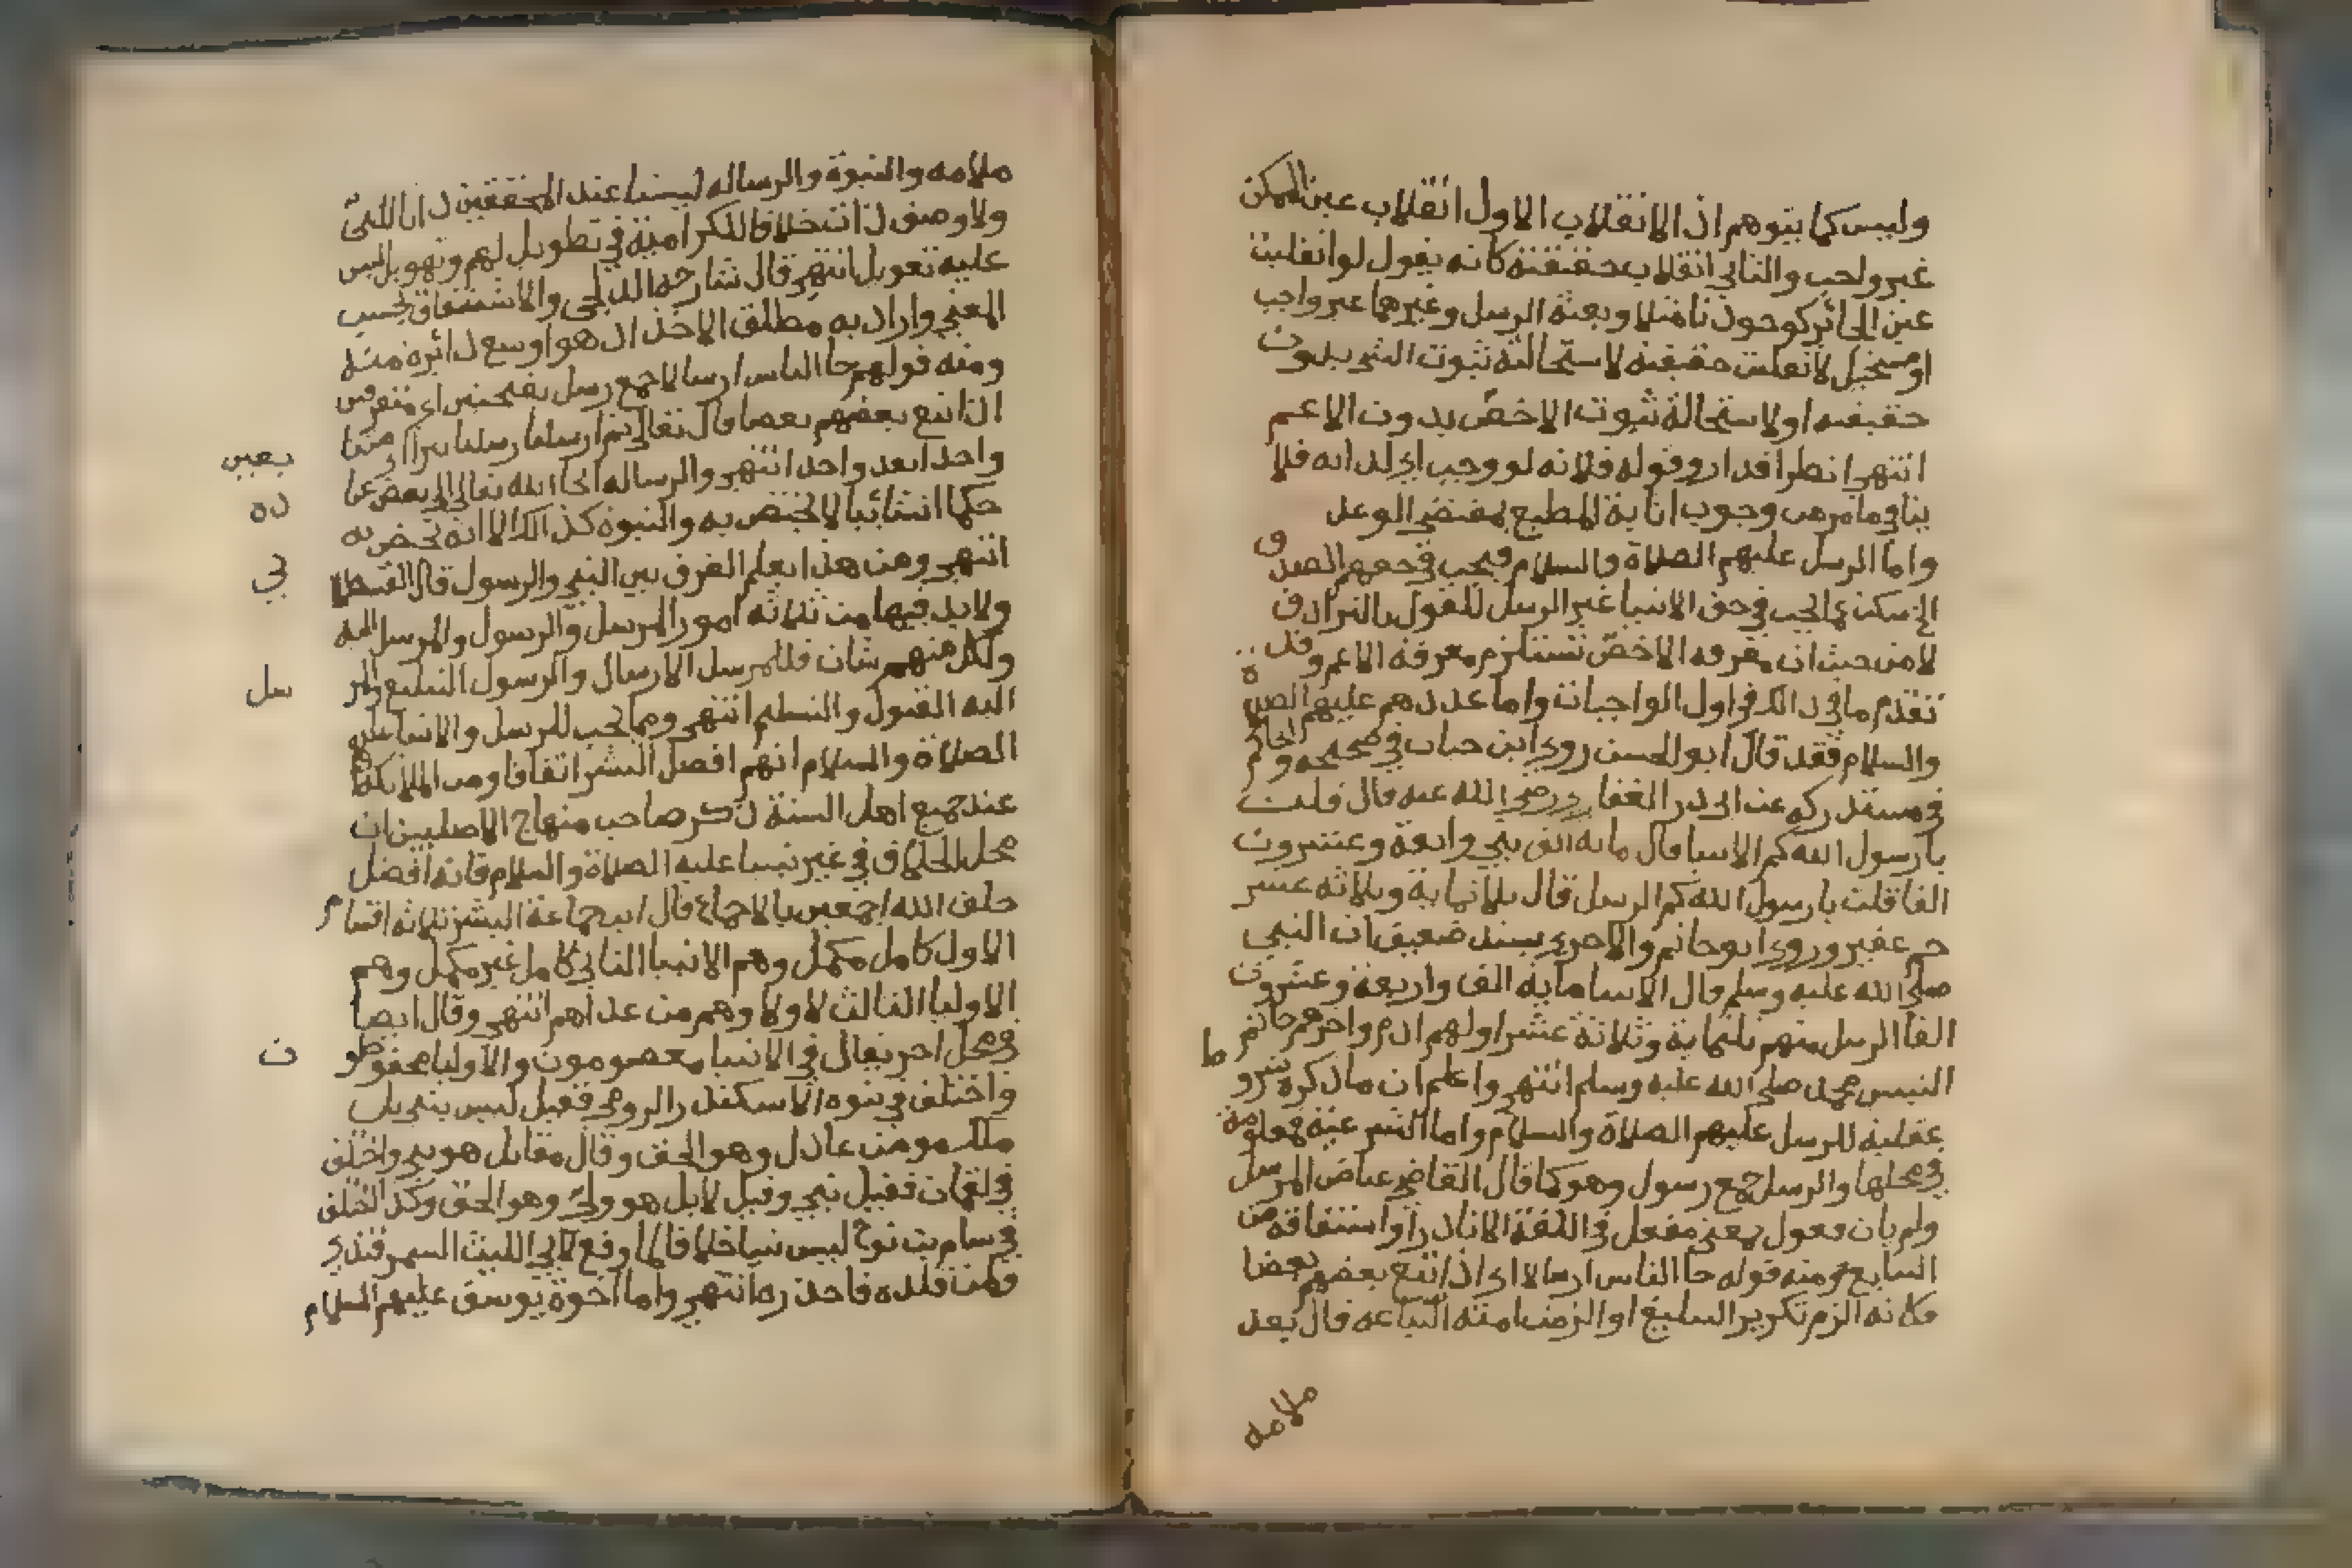 وليس كما يتوهم ان الانقلاب الاول انقلاب عين الممكن
غير واجب والثاني انقلاب حقيقته كانه يقول لو انقلبت
عين الجائز كوجودنا مثلا وبعثة الرسل وغيرهما عين واجب
او مستحيل لانقلبت حقيقته لاستحالة ثبوت الشي بدون
حقيقته او لاستحالة ثبوت الاخص بدون الاعم
انتهى انظر اقدارو قوله فلانه لو وجب اي لذاته فلا
ينافي ما مر من وجوب اثابة المطيع بمقتضى الوعد
واما الرسل عليهم الصلاة والسلام فيجب في حقهم الصدق
الخ سكت عما يجب في حق الانبيا غير الرسل للقول بالترادف
لا من حيث ان معرفة الاخص تستلزم معرفة الاعم وقد
تقدم ما في ذالك في اول الواجبات واما عددهم عليهم الصلاة
والسلام فقد قال ابو الحسن روى ابن حبان في صحيحه والحاكم
في مستدركه عن ابي ذر الغفاري رضي الله عنه قال قلت
يا رسول الله كم الانبيا قال مايه الف نبي واربعة وعشرون
الفا قلت يا رسول الله كم الرسل قال ثلاثماية وثلاثه عشر
جم غفير وروى ابو حاتم والاجري بسند ضعيف ان النبي
صلى الله عليه وسلم قال الانبيا مايه الف واربعة وعشرون
الفا الرسل منهم ثلثماية وثلاثة عشر اولهم ادم واخرهم خاتم
النبيين محمد صلى الله عليه وسلم انتهى واعلم ان ما ذكره شروط
عقلية للرسل عليهم الصلاة والسلام واما الشرعية فمعلومة
في محلها والرسل جمع رسول وهو كما قال القاضي عياض المرسل
ولم يات فعول بمعنى مفعل في اللغة الا نادرا واشتقاقه من
التتابع ومنه قوله جا الناس ارسالا اي اذا تتبع بعضهم بعضا
فكانه الزم تكرير التبليغ او الزمت امته اتباعه قال بعد
ملامه
ملامه والنبوة والرساله ليستا عند المحققين ذاتا للنبي
ولا وصف ذات خلافا للكرامية في تطويل لهم وتهويل ليس
عليه تعويل انتهى قال شارحه الدلجي والاشتقاق بحسب
المعنى واراد به مطلق الاخذ اذ هو اوسع دائرة منه
ومنه قولهم جا الناس ارسالا جمع رسل بفتحتين اي متفرقين
اذا تتبع بعضهم بعضا قال تعالى ثم ارسلنا رسلنا تترا اي متتابعين
واحدا بعد واحد انتهى والرساله ايحا الله تعالى الى بعض عباده
حكما انشائيا لا يختص به والنبوة كذالك الا انه يختص به
انتهى ومن هذا يعلم الفرق بين النبي والرسول قال القسطلاني
ولا بد فيها من ثلاثه امور المرسل والرسول والمرسل اليه
ولكل منهم شان فللمرسل الارسال والرسول التبليغ والمرسل
اليه القبول والتسليم انتهى ومما يجب للرسل والانبيا عليهم
الصلاة والسلام انهم افضل البشر اتفاقا ومن الملائكة
عند جميع اهل السنة ذكر صاحب منهاج الاصليين ان
محل الخلاف في غير نبينا عليه الصلاة والسلام فانه افضل
خلق الله اجمعين بالاجماع قال ابن جماعة البشر ثلاثه اقسام
الاول كامل مكمل وهم الانبيا الثاني كامل غير مكمل وهم
الاوليا الثالث لا ولا وهم من عداهم انتهى وقال ايضا
في محل اخر يقال في الانبيا معصومون والاوليا محفوظون
واختلف في نبوة الاسكندر الرومي فقيل ليس بنبي بل
ملك مومن عادل وهو الحق وقال مقاتل هو نبي واختلف
في لقمان فقيل نبي وقيل لا بل هو ولي وهو الحق وكذا اختلف
في سام بن نوح ليس نبيا خلافا لما وقع لابي الليث السمرقندي
ومن قلده فاحذره انتهى واما اخوة يوسف عليهم السلام